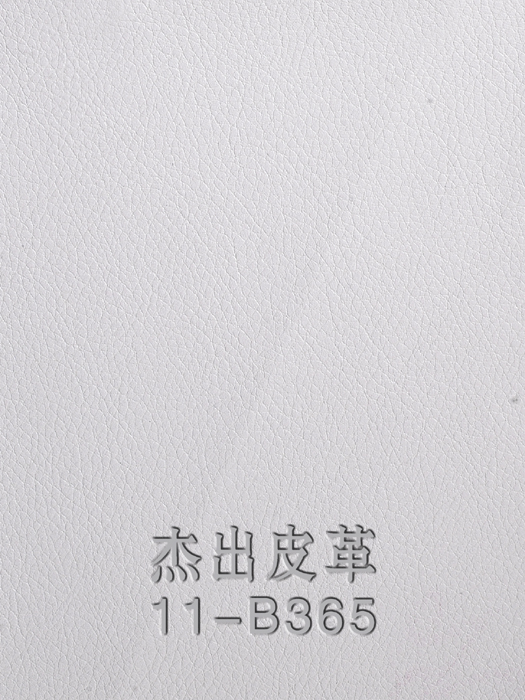 杰出皮革
11-B365